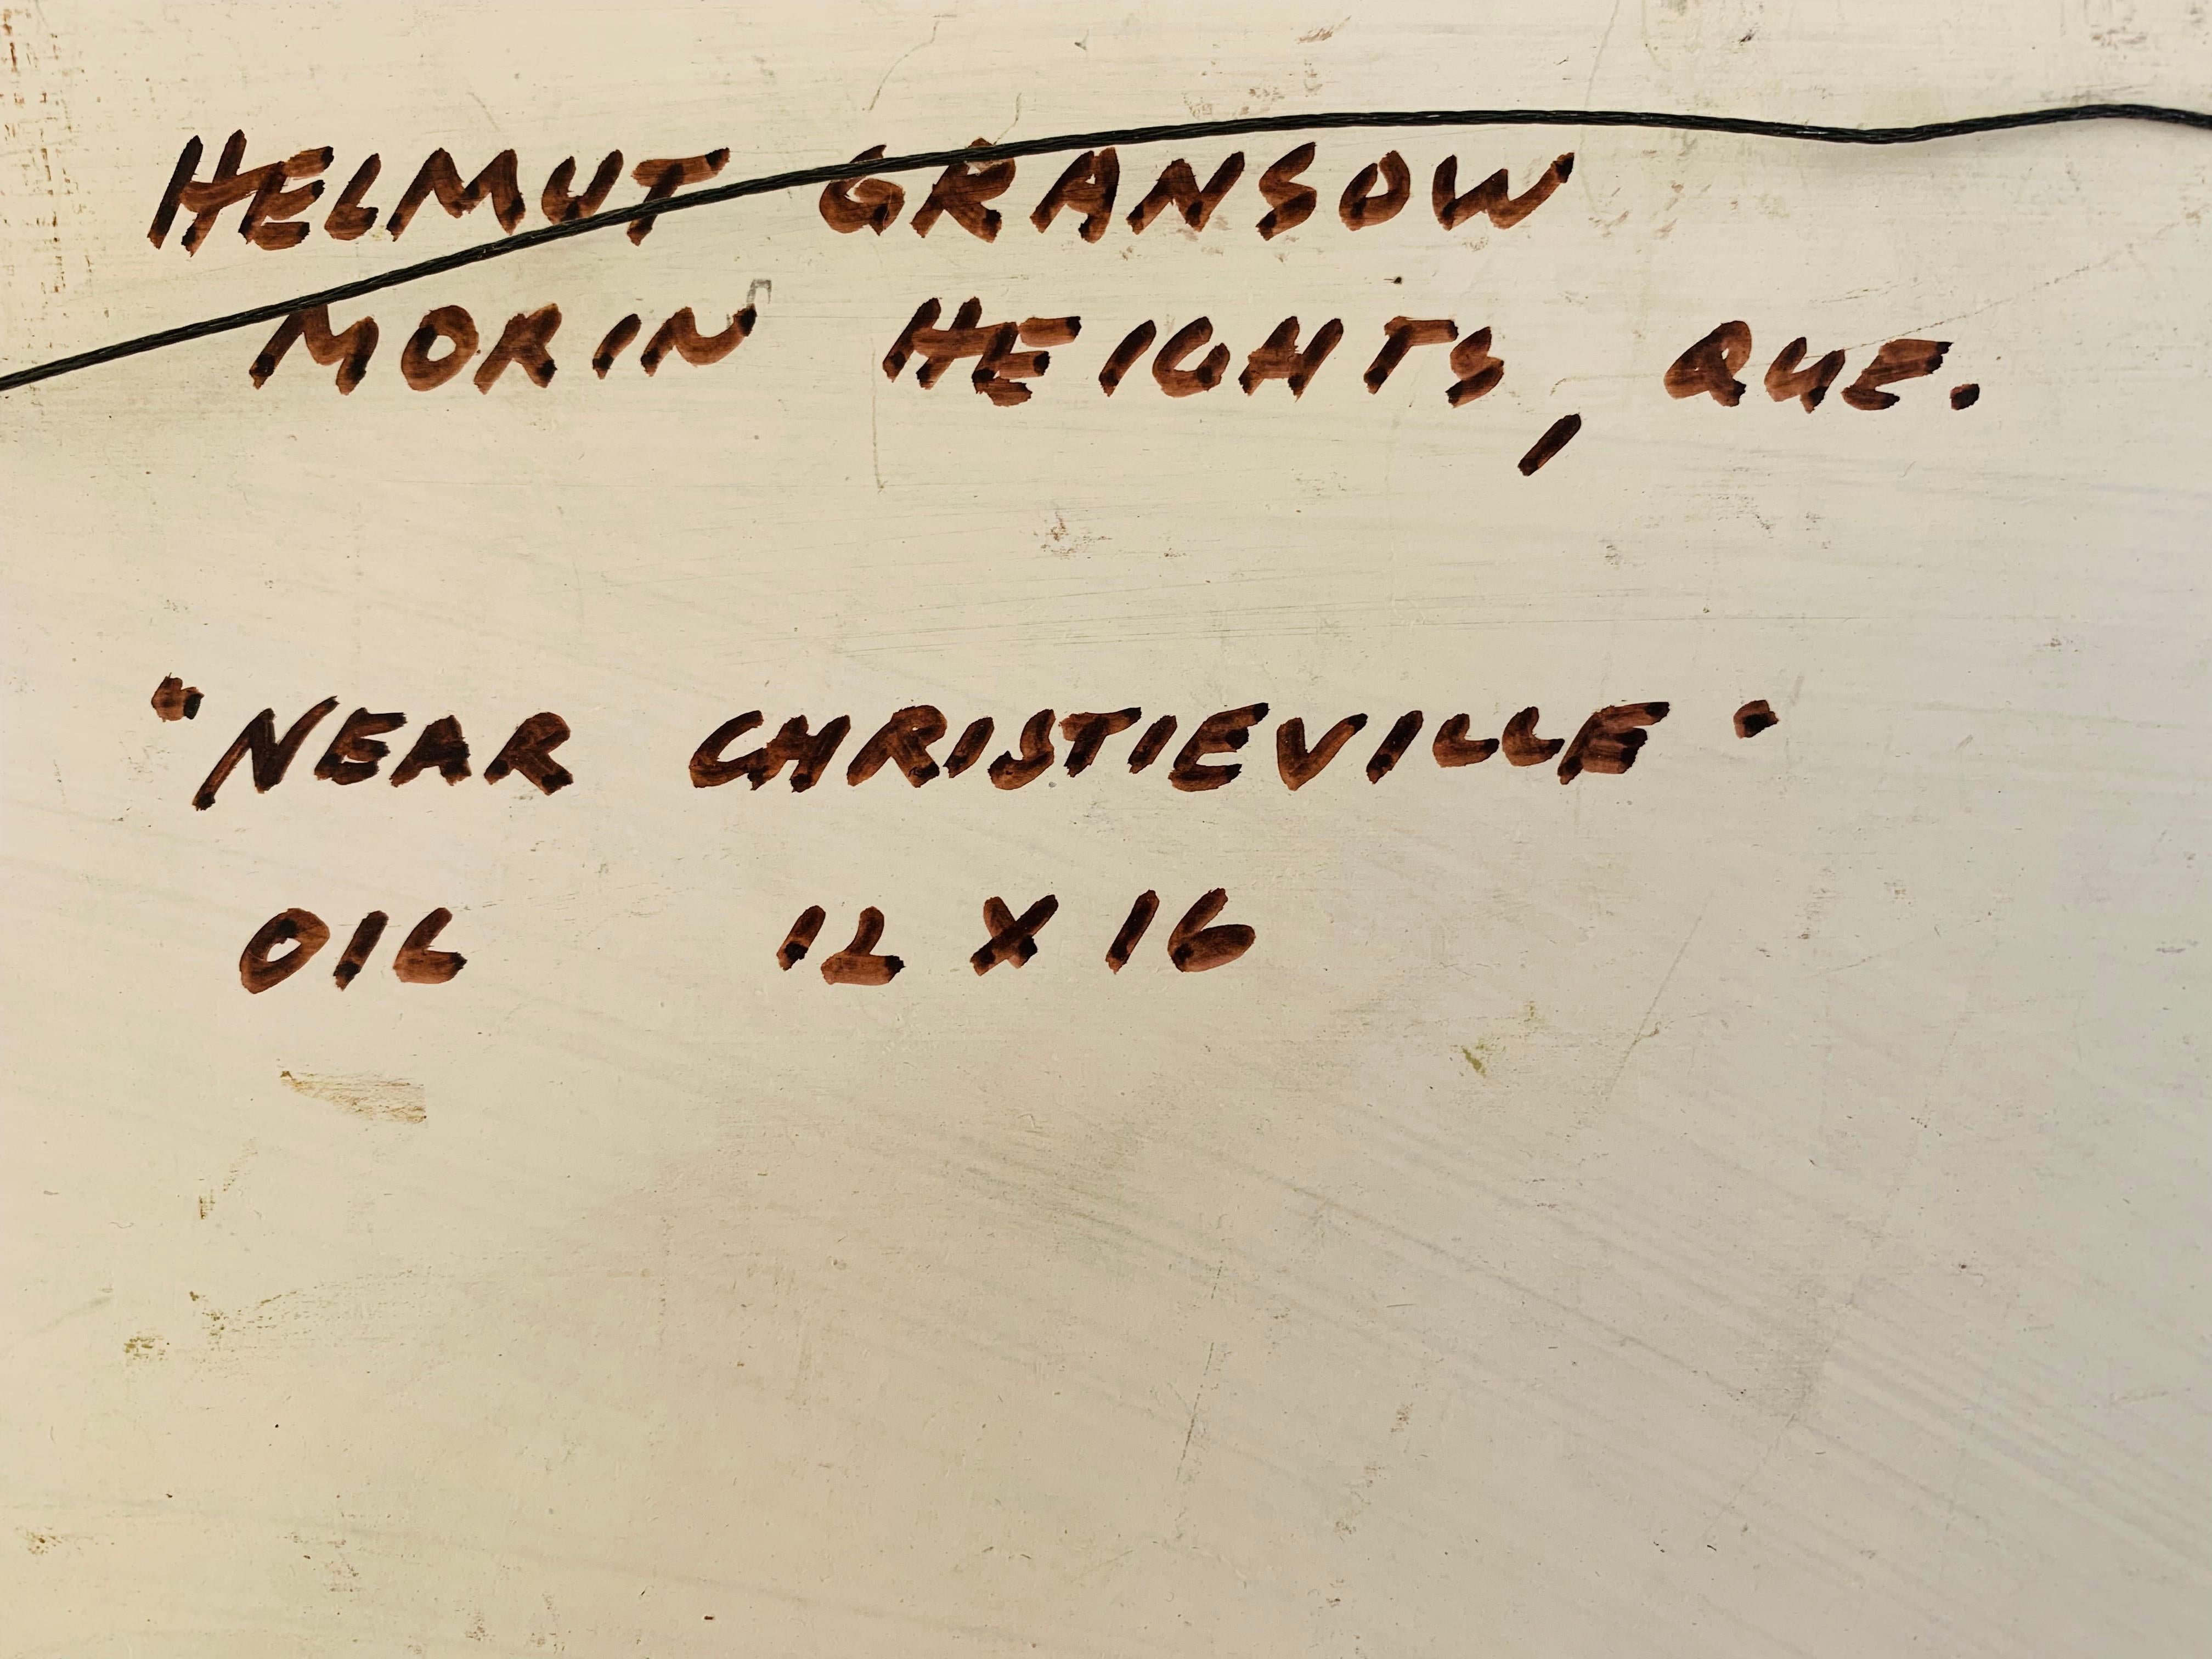 HELMUT GRANSOW
MORIN HEIGHTS, QUE.
"NEAR CHRISTIEVILLE"
OIL 12 X 16